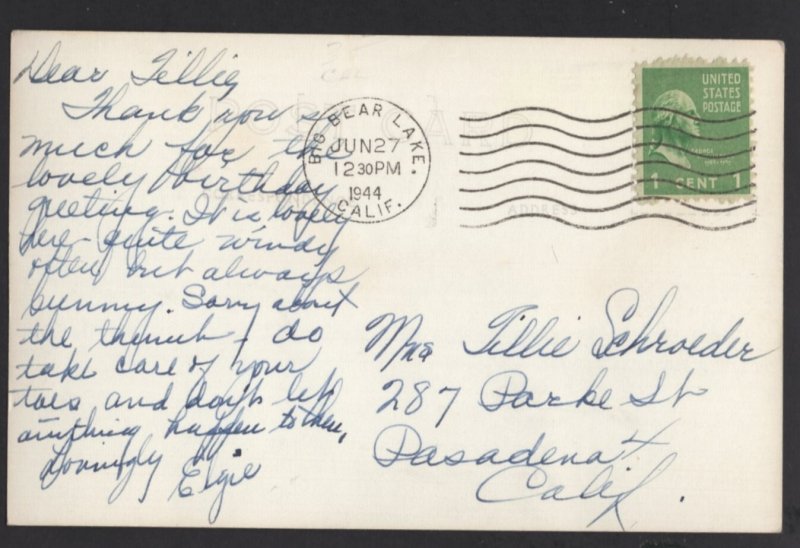 Dear Tillie
Thank you so
much for the
lovely birthday
greeting. It is lovely
here - quite windy
often but always
sunny. Sorry about
the thumb - do
take care of your
toes and don't let
anything happen to them,
Lovingly
Elgie
POST CARD
CORRESPONDENCE
ADDRESS
BIG BEAR LAKE,
JUN 27
12 30 PM
1944
CALIF.
UNITED
STATES
POSTAGE
1 CENT 1
Mrs Tillie Schroeder
287 Parke St
Pasadena 4
Calif.